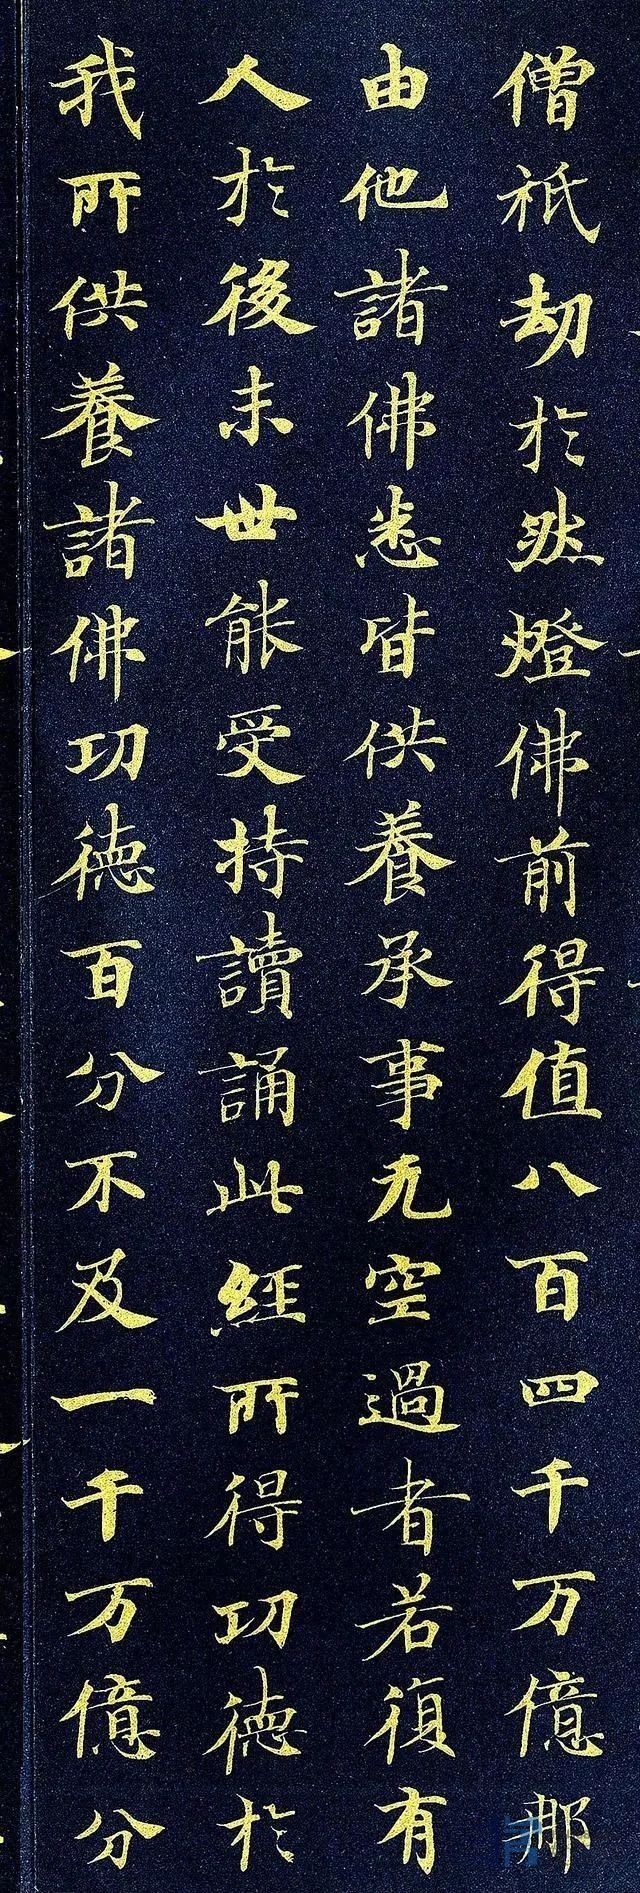 僧祇劫於然燈佛前得值八百四千万億那
由他諸佛悉皆供養承事无空過者若復有
人於後末世能受持讀誦此經所得功德於
我所供養諸佛功德百分不及一千万億分